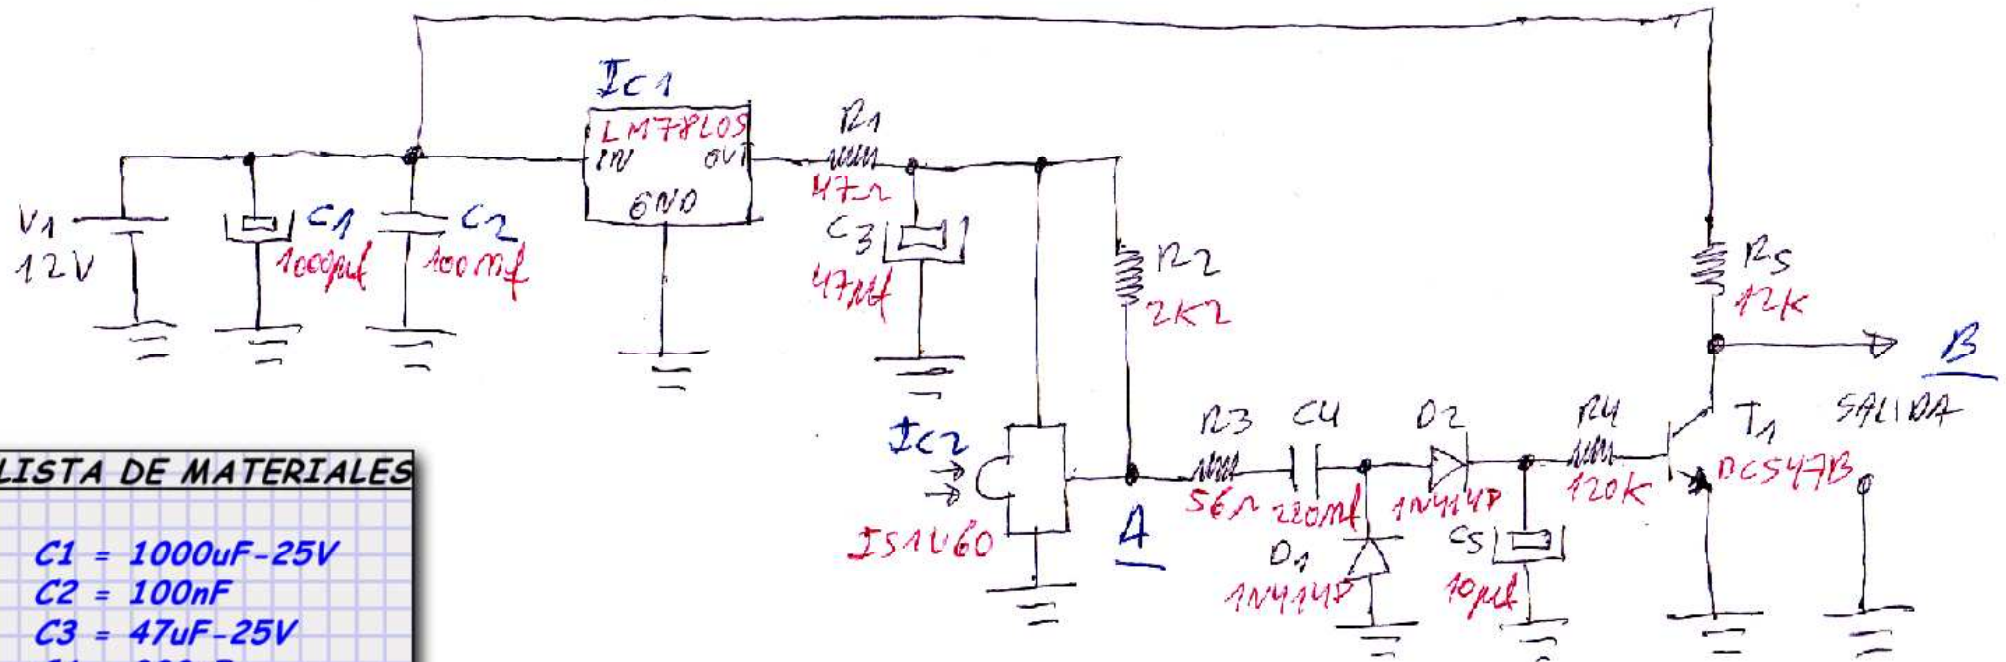 IC1
LM78L05
IN
OUT
GND
R1
47Ω
V1
12V
C1
1000µf
C2
100nf
C3
47µf
R2
2K2
R5
12K
B
SALIDA
IC2
IS1U60
A
R3
56Ω
C4
220nf
D1
1N4148
D2
1N4148
C5
10µf
R4
120K
T1
BC547B
LISTA DE MATERIALES
C1 = 1000uF-25V
C2 = 100nF
C3 = 47uF-25V